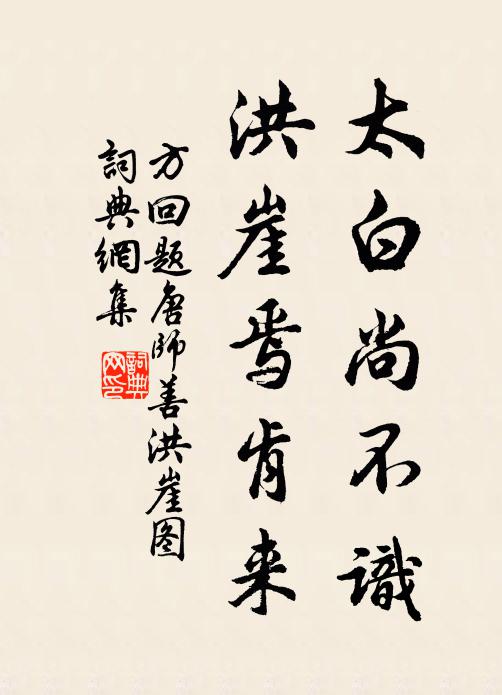 太白尚不識
洪崖焉肯来
方回题唐师善洪崖图
詞典網集
詞典网印